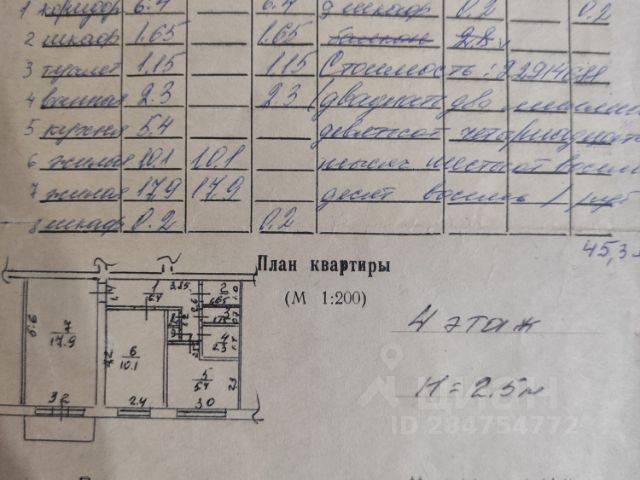 1 коридор 6.4 6.4 8 шкаф 0.2 0.2
2 шкаф 1.65 1.65 балкон 2.8
3 туалет 1.15 1.15 Стоимость: 22914688
4 ванная 2.3 2.3 (двадцать два миллио
5 кухня 5.4 девятсот четырнадцать
6 жилая 10.1 10.1 тысяч шестсот восем
7 жилая 17.9 17.9 десят восемь) руб
8 шкаф 0.2 0.2
45,3
План квартиры
(М 1:200)
4 этаж
H = 2.5 м
1
6.4
3.85
2
1.65
3
1.15
4
2.3
5
5.4
6
10.1
7
17.9
5.6
4.2
3.2
2.4
3.0
2.3
циан
ID 284754772